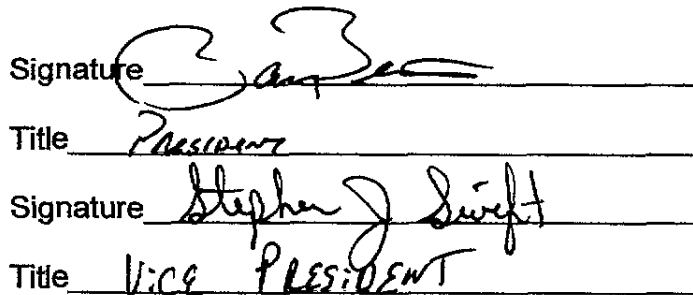 Signature
Title President
Signature Stephen J Swift
Title Vice PRESIDENT